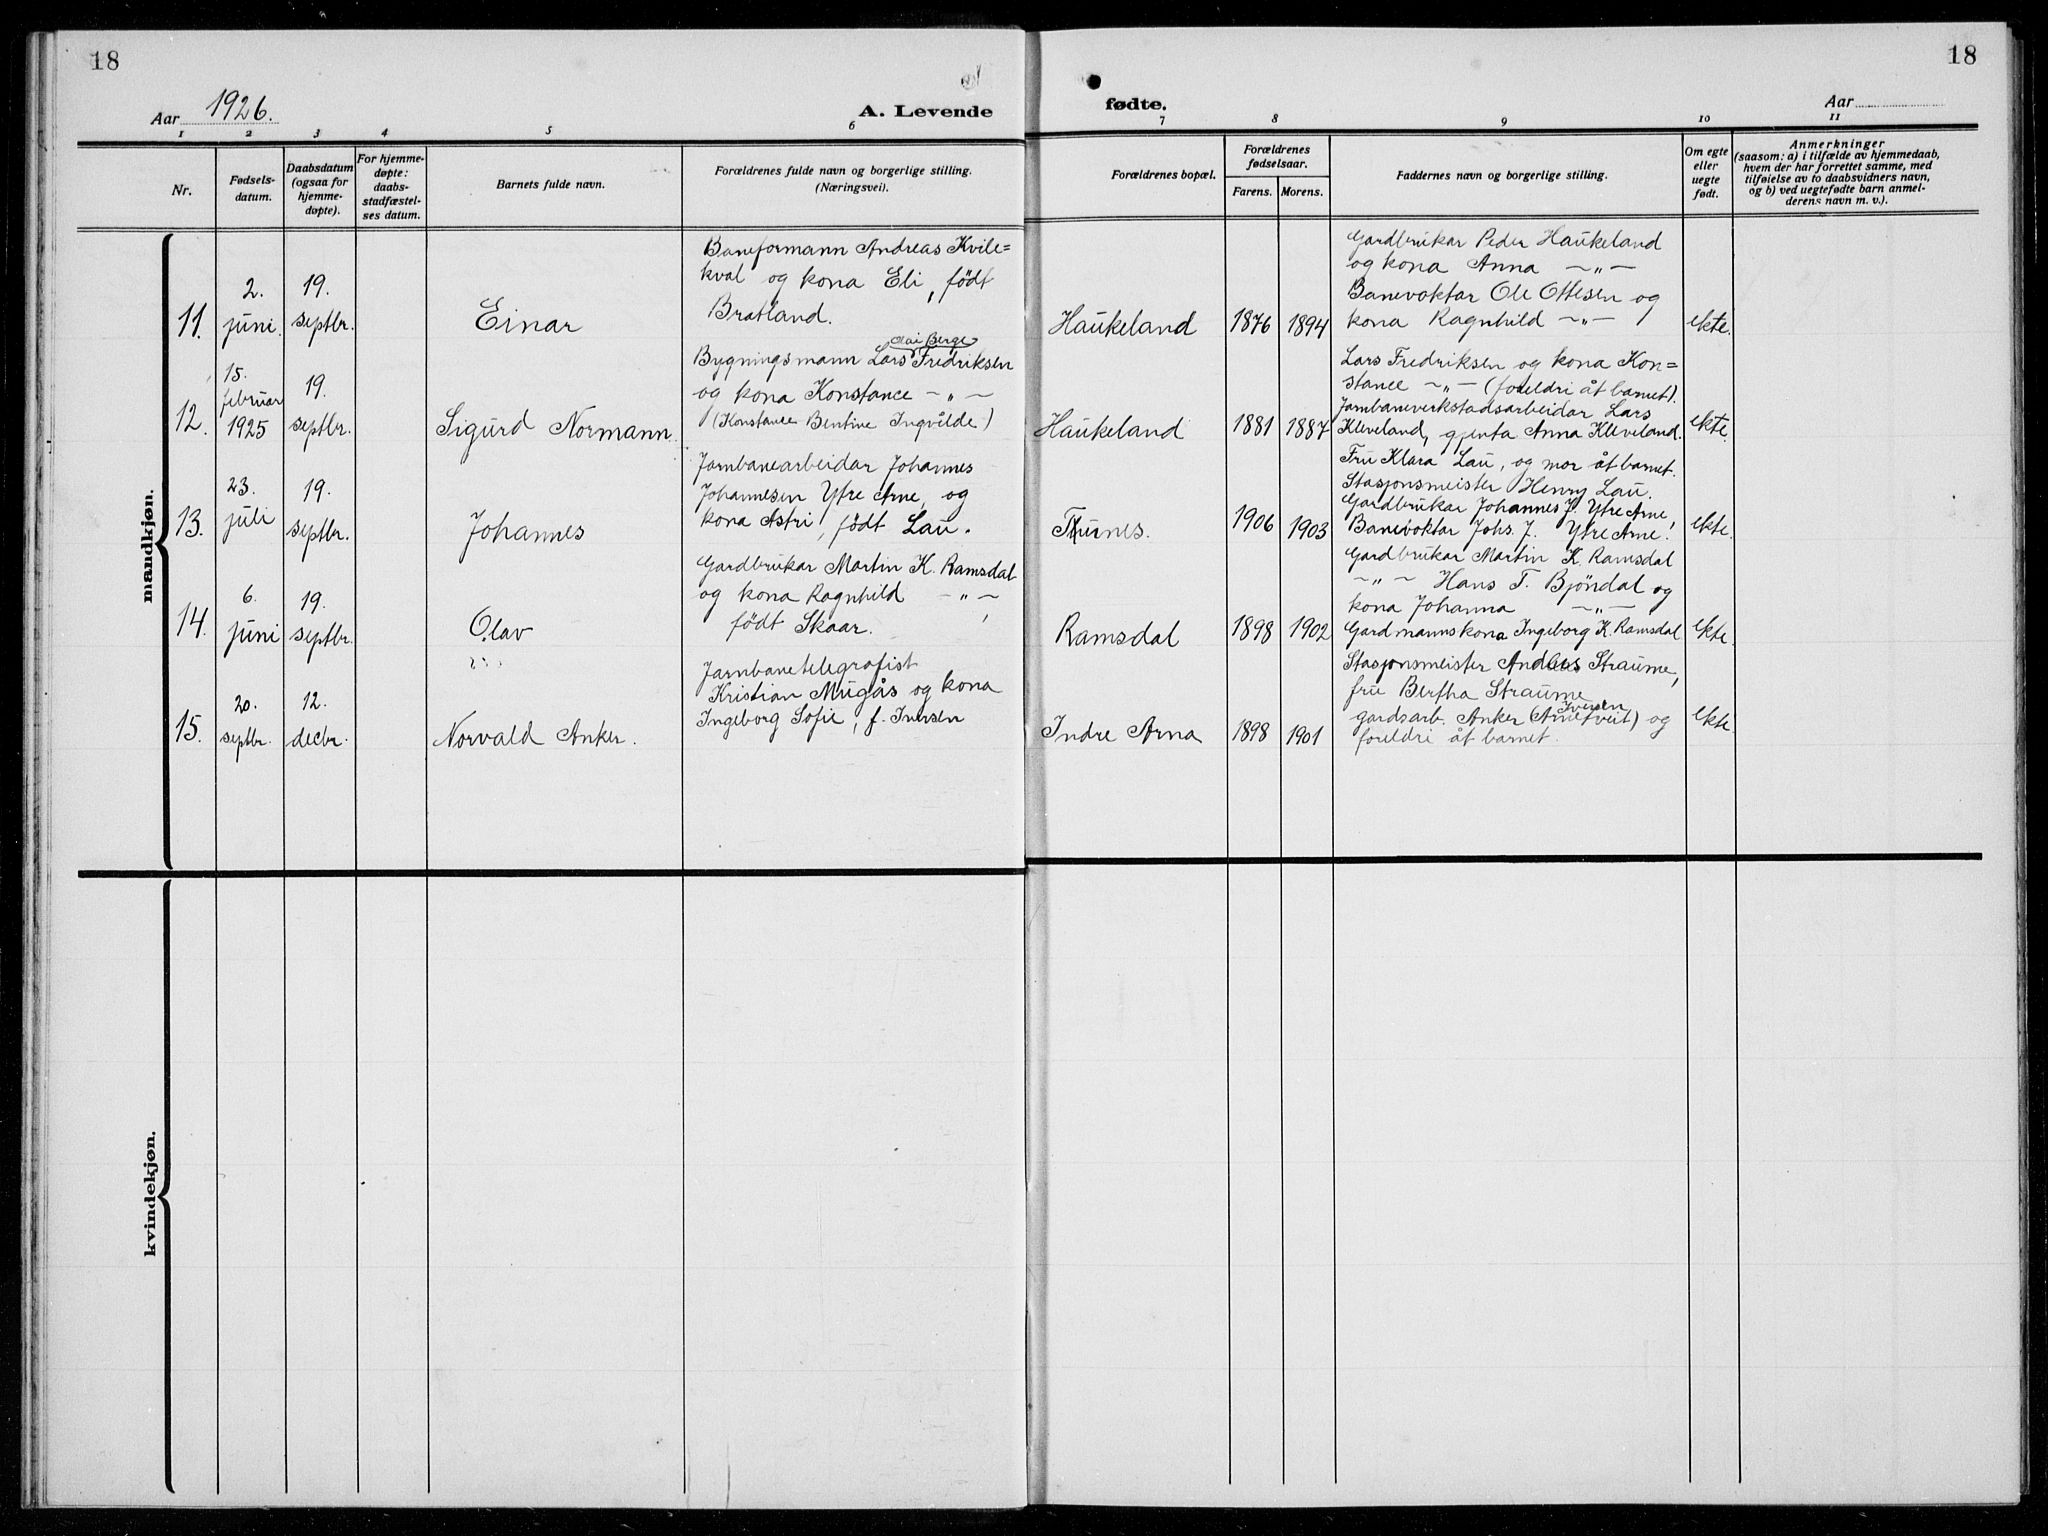 18
18
Aar 1926.
A. Levende
fødte.
Aar
1 2 3 4 5 6 7 8 9 10 11
Nr.
Fødsels-
datum.
Daabsdatum
(ogsaa for
hjemme-
døpte).
For hjemme-
døpte:
daabs-
stadfæstel-
ses datum.
Barnets fulde navn.
Forældrenes fulde navn og borgerlige stilling.
(Næringsvei).
Forældrenes bopæl.
Forældrenes
fødselsaar.
Farens. Morens.
Faddernes navn og borgerlige stilling.
Om egte
eller
uegte
født.
Anmerkninger
(saasom: a) i tilfælde av hjemmedaab,
hvem der har forrettet samme, med
tilføielse av to daabsvidners navn,
og b) ved uegtefødte barn anmel-
derens navn m. v.).
mandkjøn.
11.
2.
juni
19.
septbr.
Einar
Baneformann Andreas Kvile=
kval og kona Eli, født
Bratland.
Haukeland
1876
1894
Gardbrukar Peder Haukeland
og kona Anna –„–
Banevoktar Ole Ottesen og
kona Ragnhild –„–
ekte.
12.
15.
februar
1925
19.
septbr.
Sigurd Normann.
Berge
Bygningsmann Lars Fredriksen
og kona Konstance –„–
(Konstance Bentine Ingvilde)
Haukeland
1881
1887
Lars Fredriksen og kona Kon=
stance –„– (foreldri åt barnet).
Jarnbaneverkstadsarbeidar Lars
Kleveland, gjenta Anna Kleveland.
ekte.
13.
23.
juli
19.
septbr.
Johannes
Jarnbanearbeidar Johannes
Johannesen Ytre Arne, og
kona Astri, født Lau.
Tunes.
1906
1903
Fru Klara Lau, og mor åt barnet.
Stasjonsmeister Henry Lau.
Gardbrukar Johannes J. Ytre Arne,
Banevoktar Johs. J. Ytre Arne.
ekte.
14.
6.
juni
19.
septbr.
Olav
Gardbrukar Martin K. Ramsdal
og kona Ragnhild –„–,
født Skaar.
Ramsdal
1898
1902
Gardbrukar Martin K. Ramsdal
–„– Hans T. Bjöndal og
kona Johanna –„–
Gardmannskona Ingeborg K. Ramsdal
ekte.
15.
20.
septbr.
12.
decbr.
Norvald Anker.
Jarnbanetelegrafist
Kristian Mugås og kona
Ingeborg Sofie, f. Iversen
Indre Arna
1898
1901
Stasjonsmeister Straume,
fru Bertha Straume
Iversen
gardsarb. Anker (Arnetveit) og
foreldri åt barnet.
ekte.
kvindekjøn.